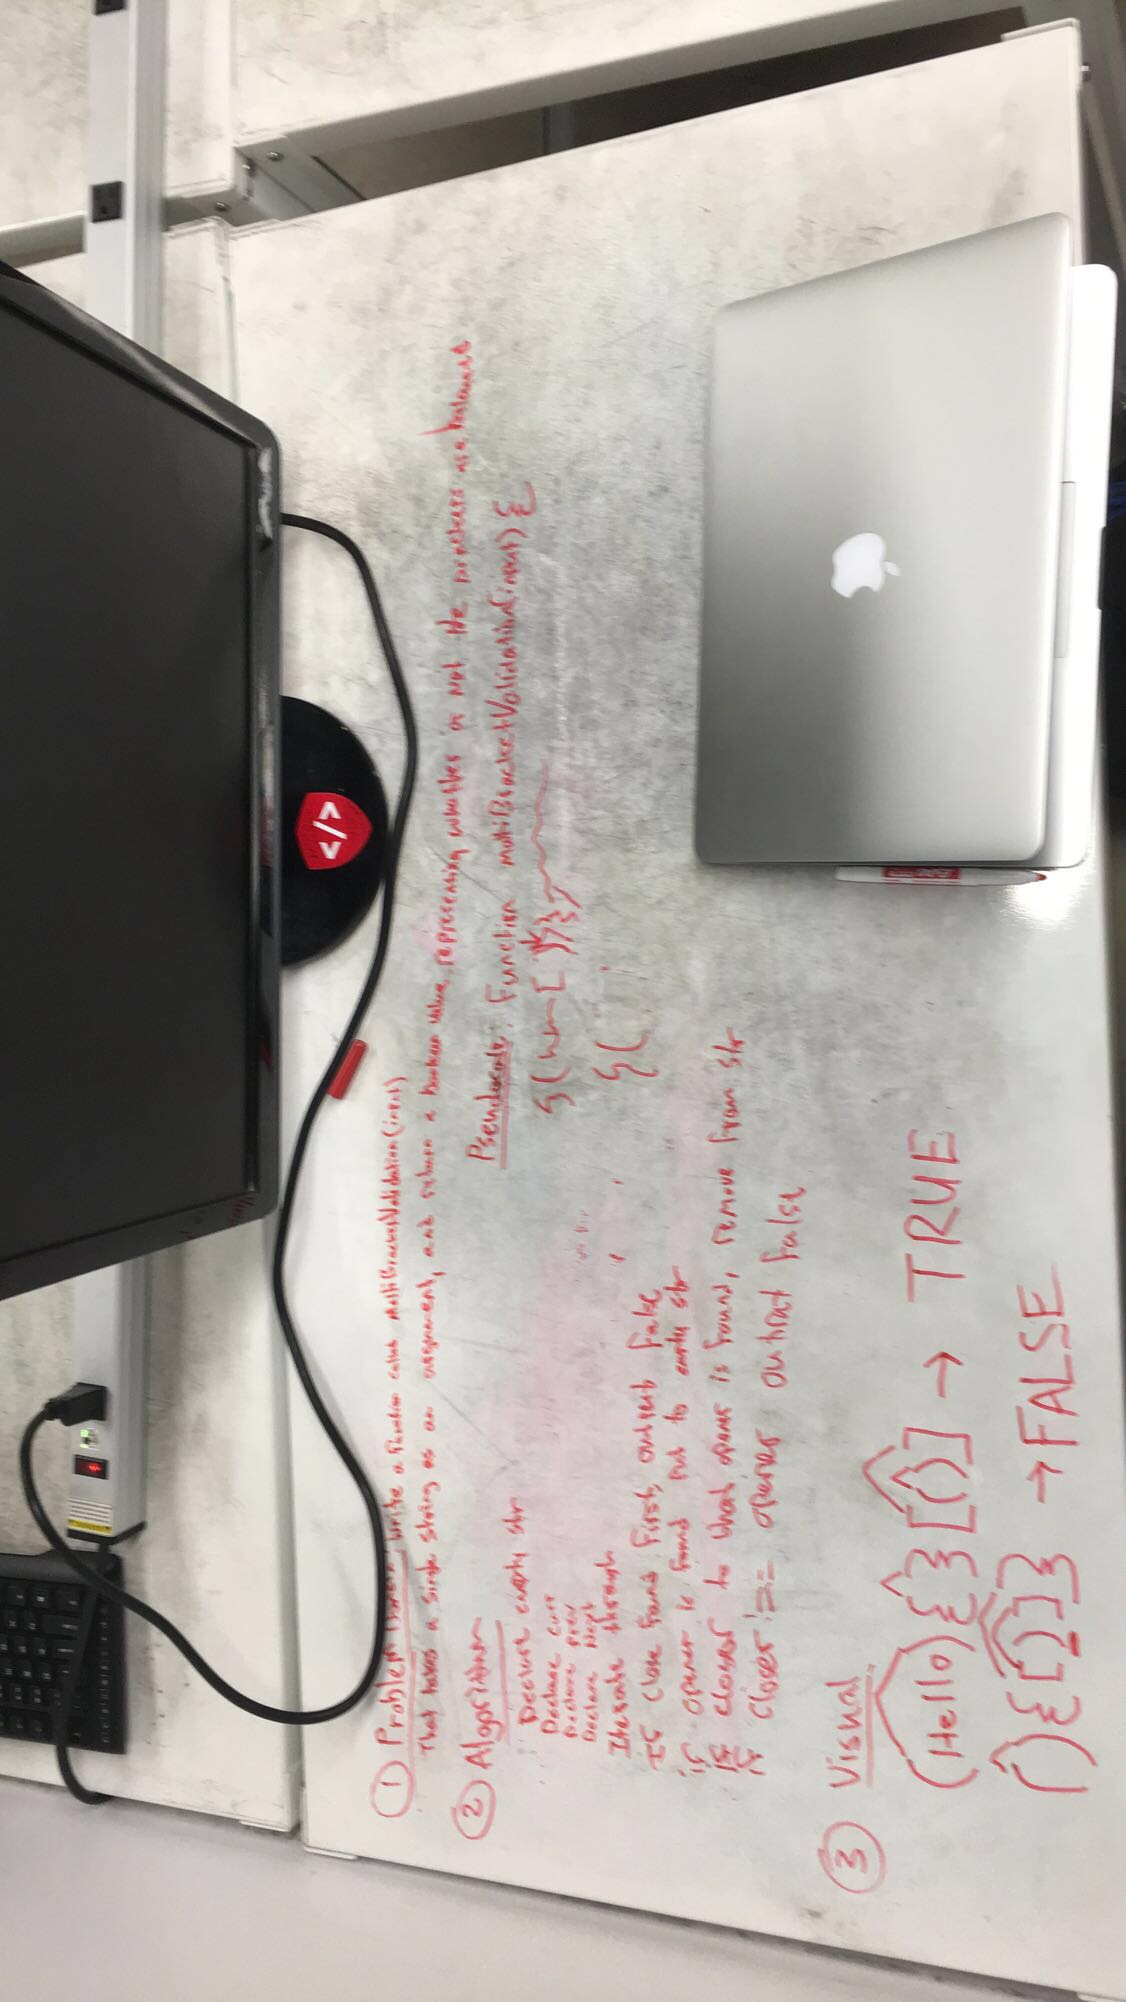 ① Problem Domain: write a function called multiBracketValidation(input)
That takes a single string as an argument, and return a boolean value representing whether or not the brackets are balanced
② Algorithm
Declare empty str
Declare curr
Declare Prev
Declare Next
Iterate through
If close found first, output false
if opener is found put to empty str
If closer to that opener is found, remove from str
if closer != opener output false
Pseudocode: Function multiBracketValidation(input){
{(
③ Visual
(Hello){}[()] → TRUE
(){[)]} → FALSE